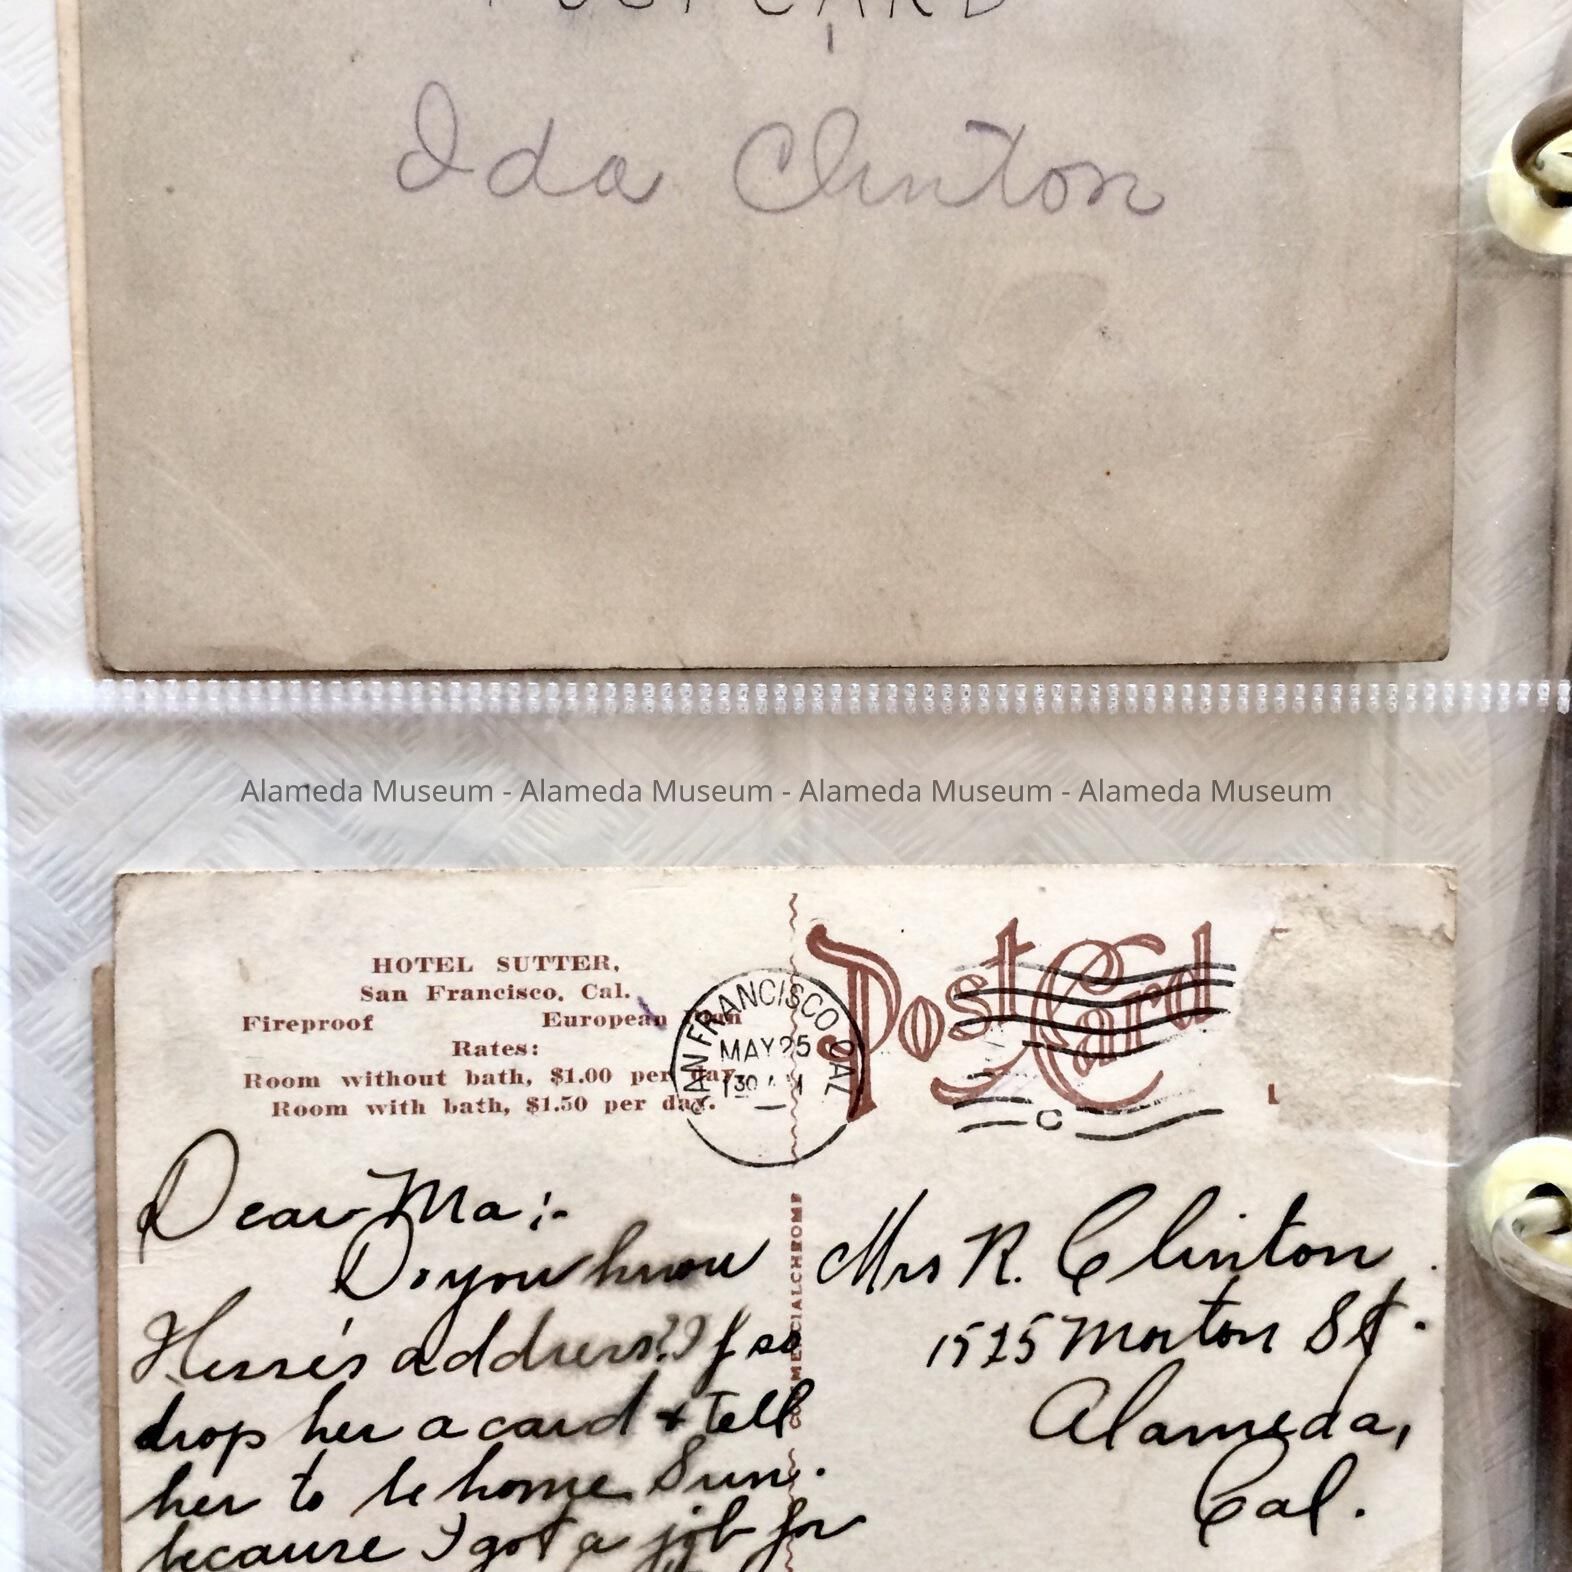 POST CARD
Ida Clinton
Alameda Museum - Alameda Museum - Alameda Museum - Alameda Museum
HOTEL SUTTER,
San Francisco, Cal.
Fireproof European Plan
Rates:
Room without bath, $1.00 per day.
Room with bath, $1.50 per day.
SAN FRANCISCO CAL
MAY 25
Post Card
COMMERCIALCHROME
Dear Ma:-
Do you know
address? If so
drop her a card & tell
her to be home Sun.
because I got a job for
Mrs R. Clinton
1525 Morton St.
Alameda,
Cal.